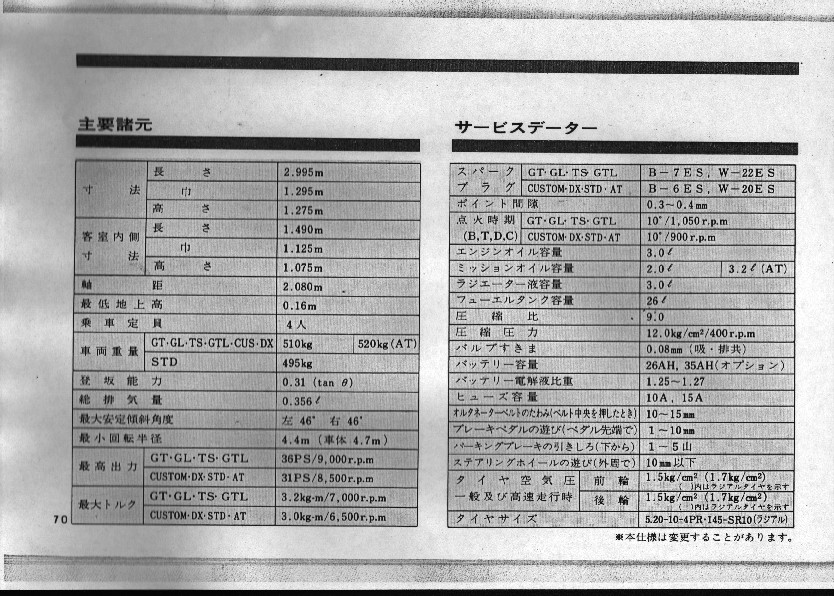 主要諸元
寸法 長さ 2.995m
巾 1.295m
高さ 1.275m
客室内側寸法 長さ 1.490m
巾 1.125m
高さ 1.075m
軸距 2.080m
最低地上高 0.16m
乗車定員 4人
車両重量 GT・GL・TS・GTL・CUS・DX 510kg 520kg(AT)
STD 495kg
登坂能力 0.31 (tan θ)
総排気量 0.356ℓ
最大安定傾斜角度 左 46° 右 46°
最小回転半径 4.4m (車体 4.7m)
最高出力 GT・GL・TS・GTL 36PS/9,000r.p.m
CUSTOM・DX・STD・AT 31PS/8,500r.p.m
最大トルク GT・GL・TS・GTL 3.2kg-m/7,000r.p.m
CUSTOM・DX・STD・AT 3.0kg-m/6,500r.p.m
70
サービスデーター
スパークプラグ GT・GL・TS・GTL B-7ES, W-22ES
CUSTOM・DX・STD・AT B-6ES, W-20ES
ポイント間隙 0.3~0.4mm
点火時期 GT・GL・TS・GTL 10°/1,050r.p.m
(B,T,D,C) CUSTOM・DX・STD・AT 10°/900r.p.m
エンジンオイル容量 3.0ℓ
ミッションオイル容量 2.0ℓ 3.2ℓ(AT)
ラジエーター液容量 3.0ℓ
フューエルタンク容量 26ℓ
圧縮比 9.0
圧縮圧力 12.0kg/cm²/400r.p.m
バルブすきま 0.08mm (吸・排共)
バッテリー容量 26AH, 35AH(オプション)
バッテリー電解液比重 1.25~1.27
ヒューズ容量 10A, 15A
オルタネーターベルトのたわみ(ベルト中央を押したとき) 10~15mm
ブレーキペダルの遊び(ペダル先端で) 1~10mm
パーキングブレーキの引きしろ(下から) 1~5山
ステアリングホイールの遊び(外周で) 10mm以下
タイヤ空気圧 前輪 1.5kg/cm² (1.7kg/cm²)
( )内はラジアルタイヤを示す
一般及び高速走行時 後輪 1.5kg/cm² (1.7kg/cm²)
( )内はラジアルタイヤを示す
タイヤサイズ 5.20-10-4PR・145-SR10(ラジアル)
※本仕様は変更することがあります。